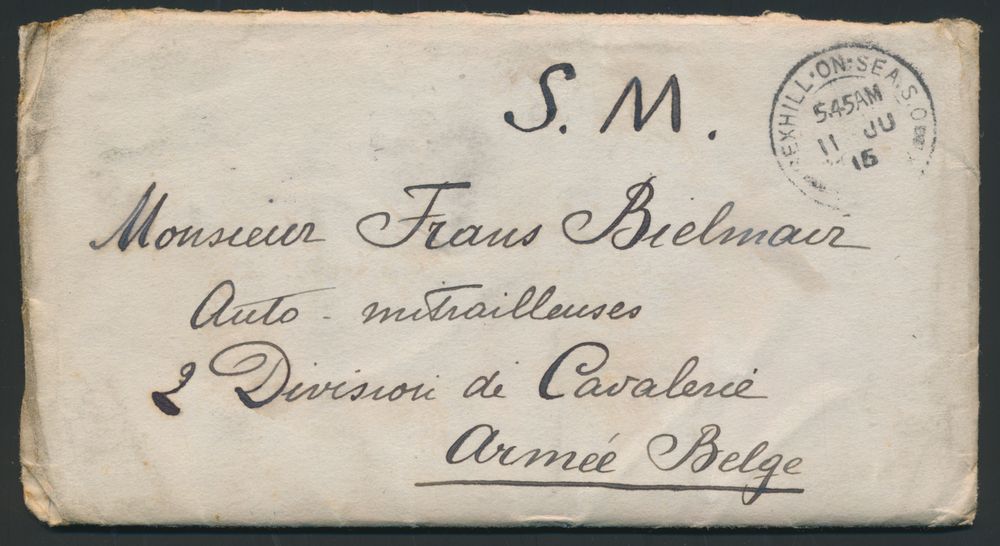 S. M.
BEXHILL·ON·SEA·S.O
5.45AM
11 JU
15
Monsieur Frans Bielmair
Auto - mitrailleuses
2 Division de Cavalerie
Armée Belge